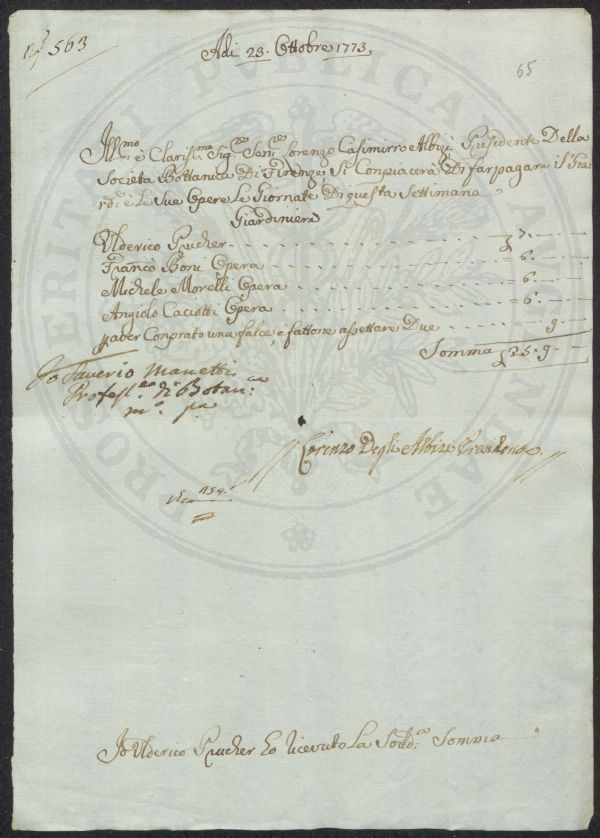 N° 563
Adi 23. Ottobre 1773
65
Ill:mo è Claris:mo Sig:re Sen:re Lorenzo Casimirro Albizi Presidente Della
Società Bottanica Di Firenze, Si Conpiacerà Di far pagare il Gia-
rd:e è Le Sue Opere Le Giornate Di questa Settimana
Giardiniere
Ulderico Prucher . . . . . . . . 7. —
Franco Boni Opera . . . . . . . = 6. —
Michele Morelli Opera . . . . . . = 6. —
Angiolo Caciotti Opera . . . . . . = 6. —
p aver Conprato una falce, e fattone assettare Due . . . . . 9 —
Somma 25. 9 —
Io Saverio Manetti
Profess:re di Botan:ca
m:o p:a
Lorenzo Degli Albizi Presidente
1154
Io Ulderico Prucher ho ricevuto La Sodd:a Somma
PROSPERITATI PUBLICAE AUGENDAE